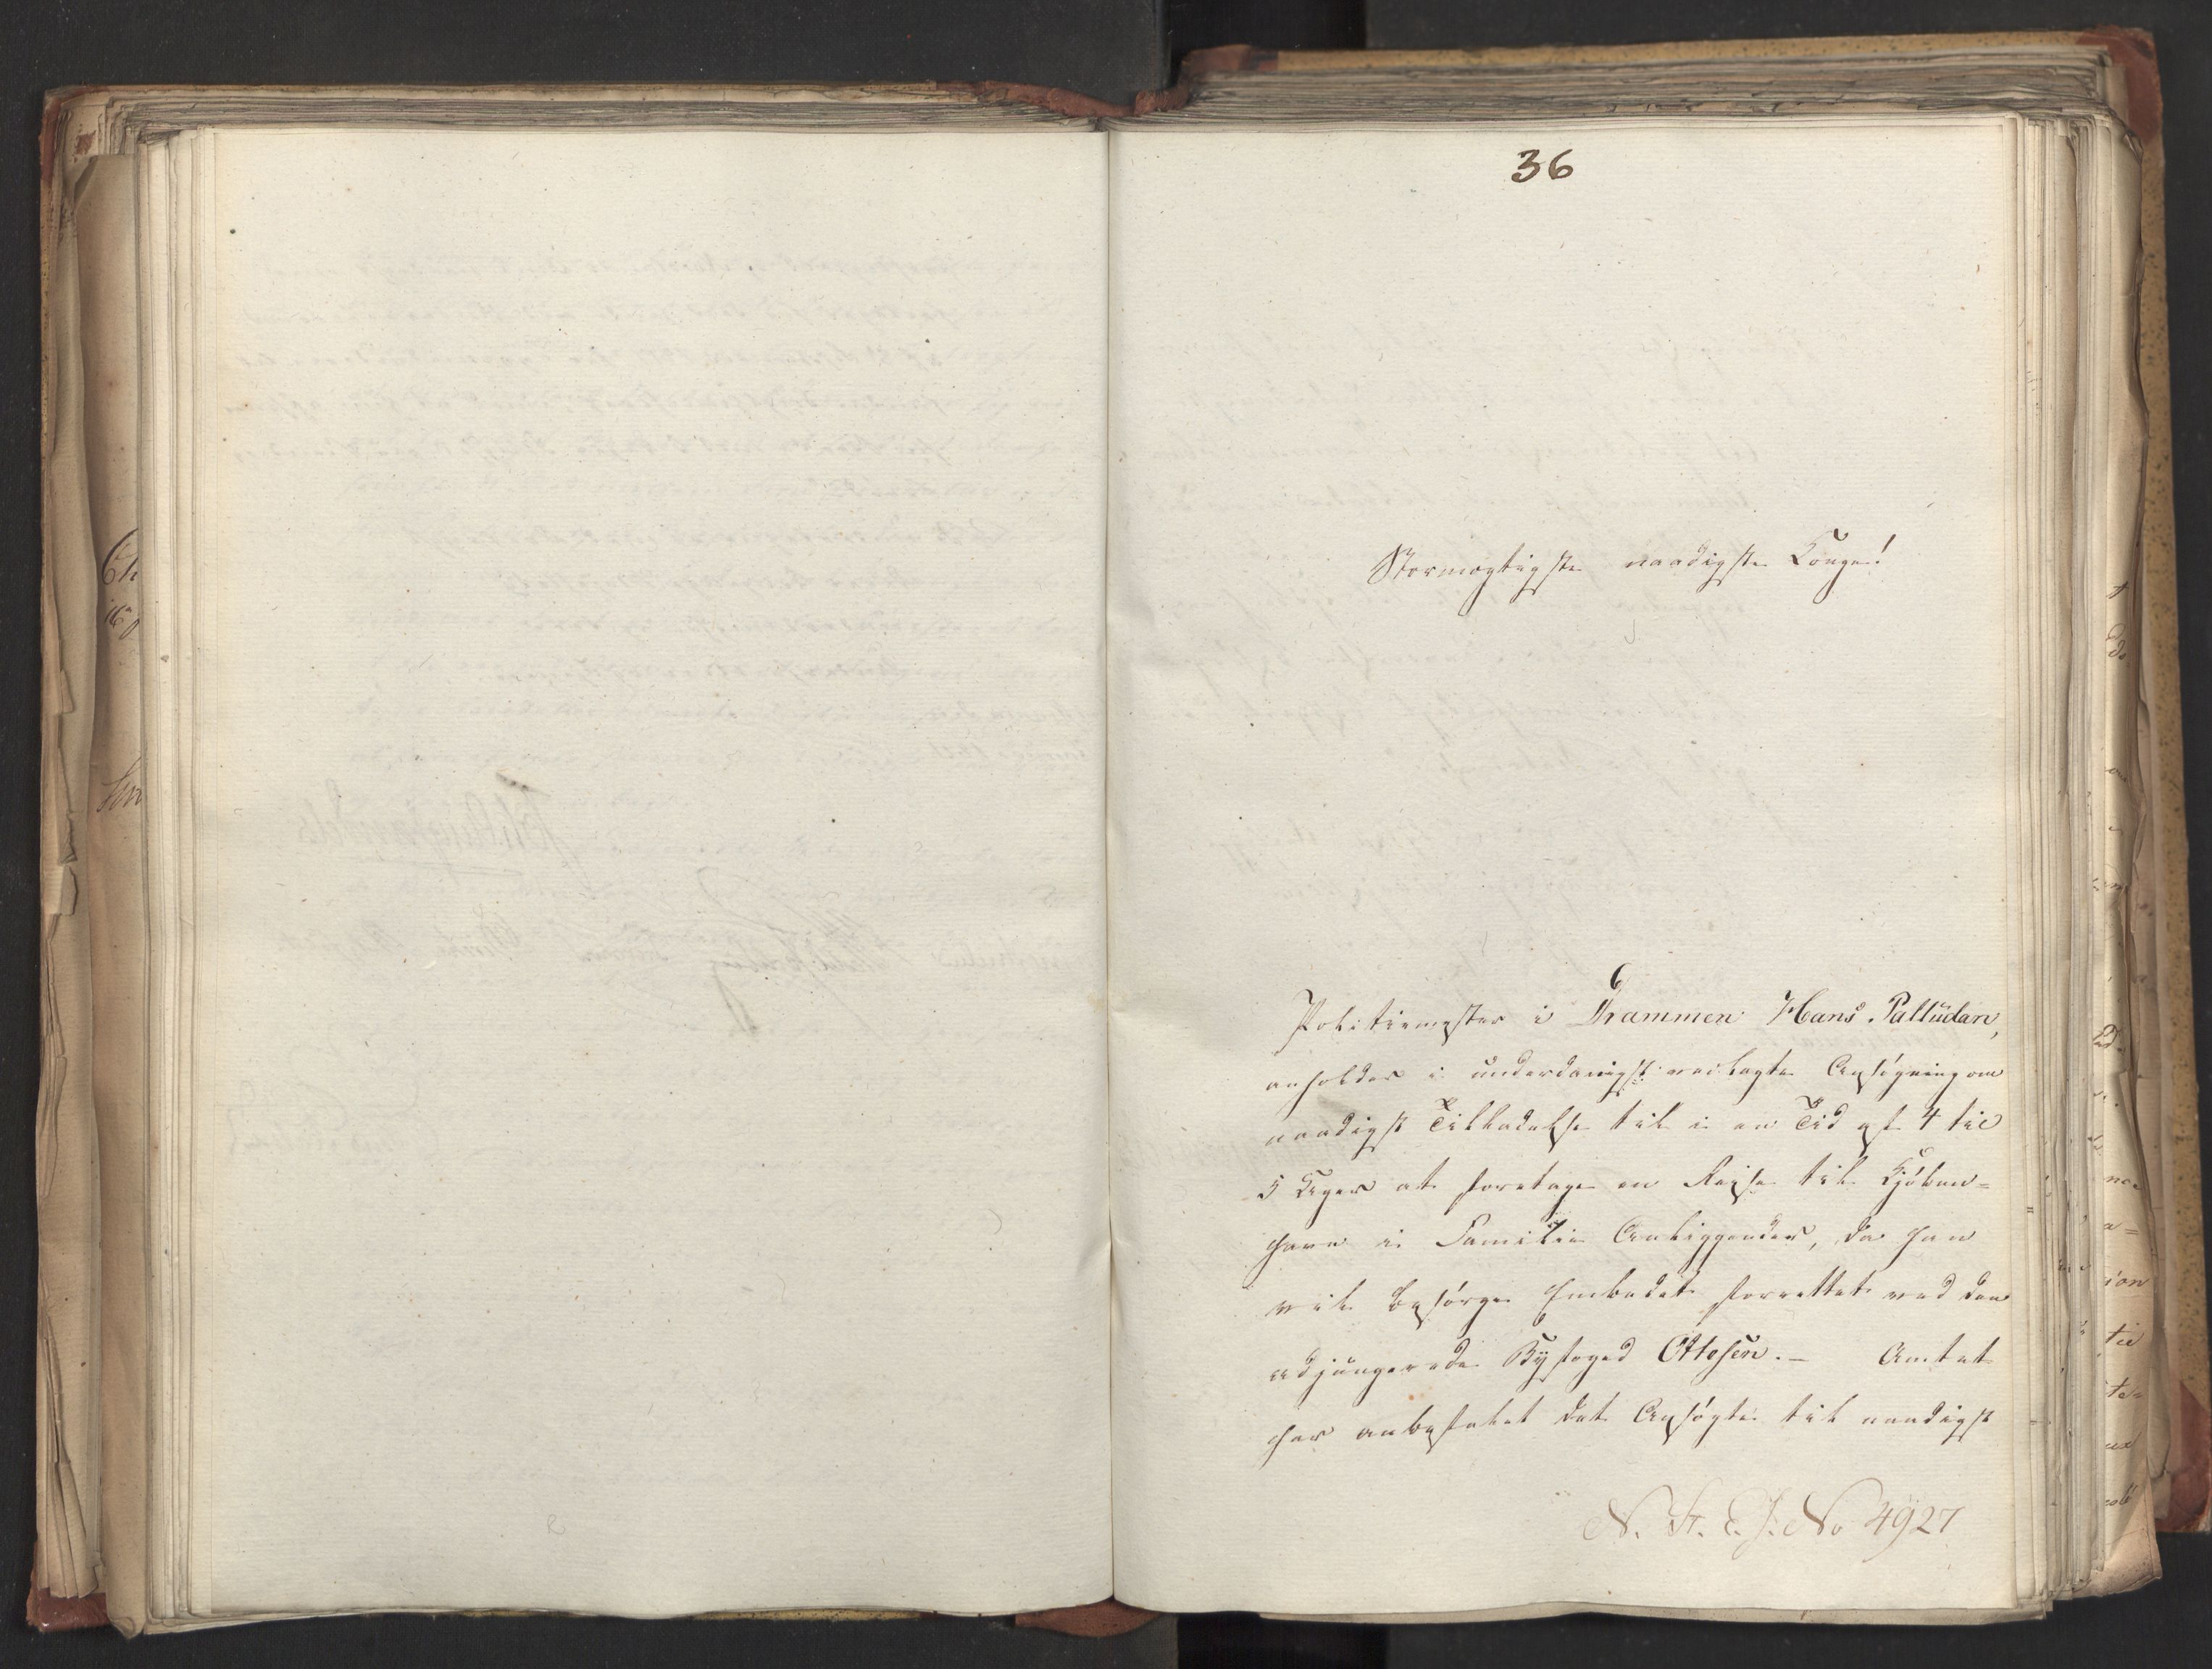 36
Stormægtigste naadigste Konge!
Politiemester i Drammen Hans Palludan,
anholder i underdanigst veilagte Ansøgning om
naadigst Tilladelse til i en Tid af 4 til
5 Uger at foretage en Reise til Kjøben=
havn i Familie Anliggender, da han
vil besørge Embedet forrettet ved den
adjungerede Byfoged Ottesen. – Amtet
har anbefalet det Ansøgte til naadigst
N. St. E. J. No 4927